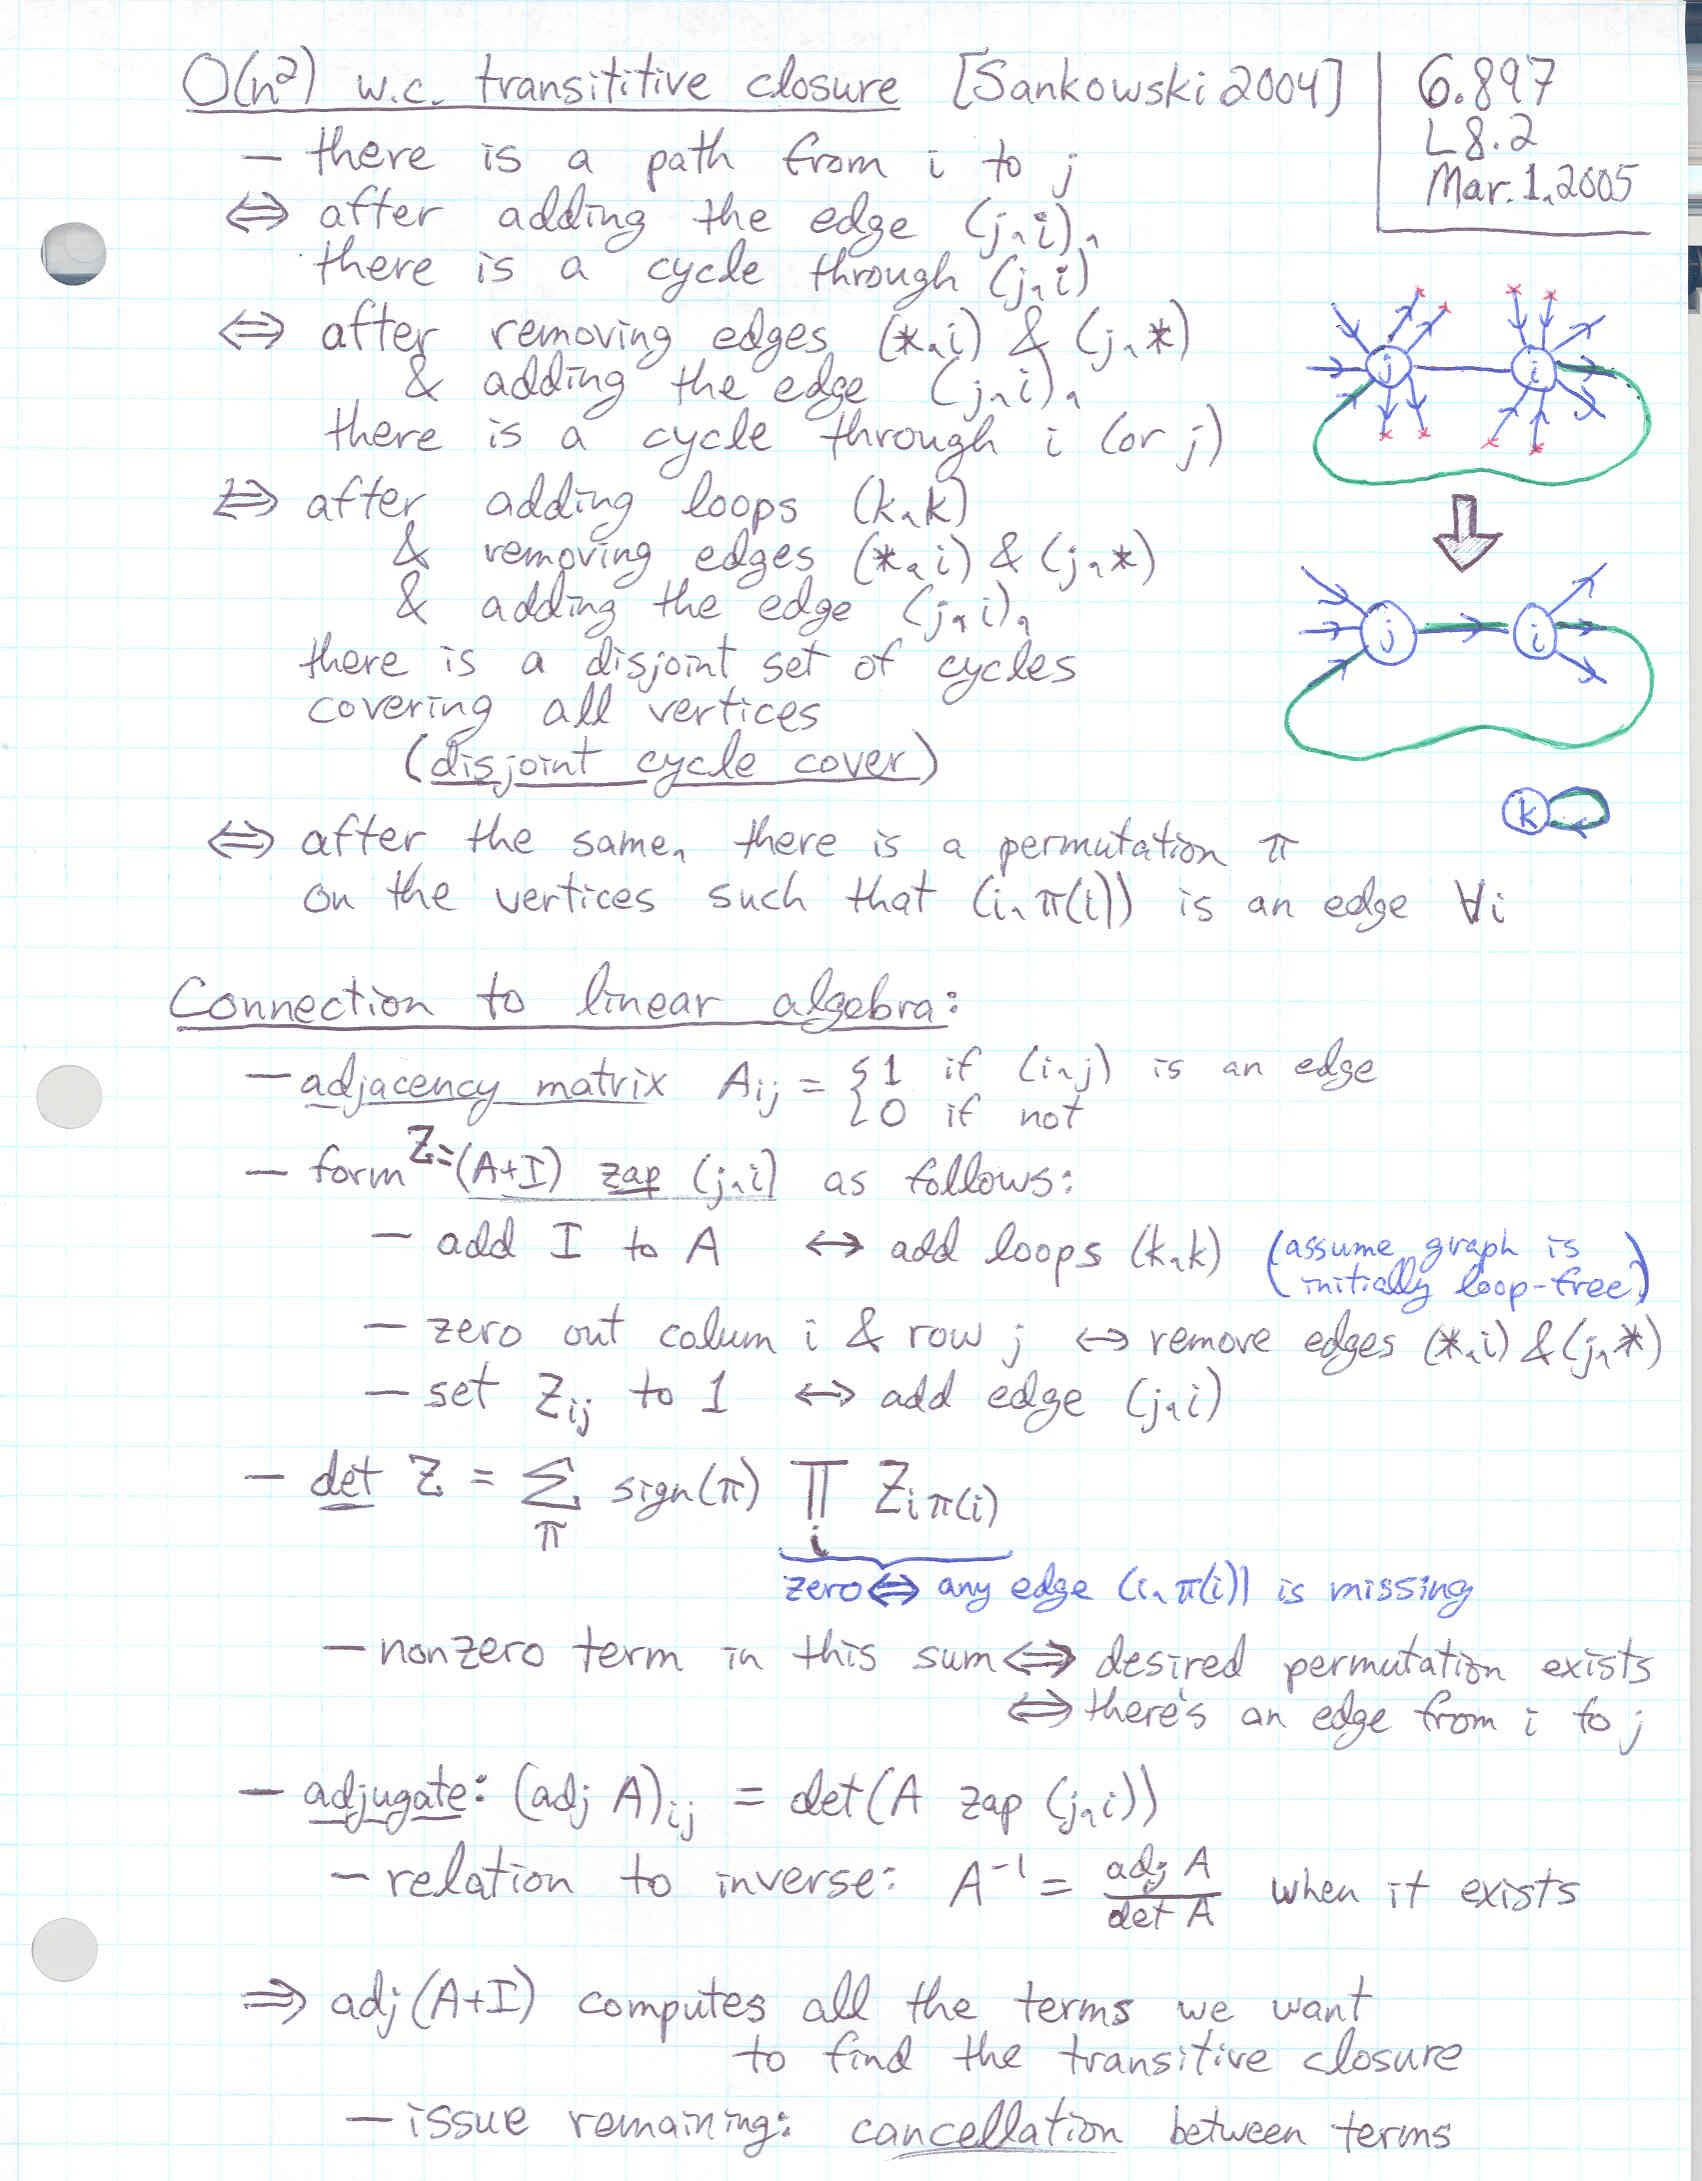 O(n²) w.c. transititive closure [Sankowski 2004]
6.897
L8.2
Mar. 1, 2005
– there is a path from i to j
⇔ after adding the edge (j,i),
there is a cycle through (j,i)
⇔ after removing edges (*,i) & (j,*)
& adding the edge (j,i),
there is a cycle through i (or j)
j i
⇔ after adding loops (k,k)
& removing edges (*,i) & (j,*)
& adding the edge (j,i),
j i
there is a disjoint set of cycles
covering all vertices
(disjoint cycle cover)
k
⇔ after the same, there is a permutation π
on the vertices such that (i,π(i)) is an edge ∀i
Connection to linear algebra:
– adjacency matrix Aij = { 1 if (i,j) is an edge
{ 0 if not
– form Z=(A+I) zap (j,i) as follows:
– add I to A ↔ add loops (k,k) (assume graph is
initially loop-free)
– zero out colum i & row j ↔ remove edges (*,i) & (j,*)
– set Zij to 1 ↔ add edge (j,i)
– det Z = Σπ sign(π) ∏i Zi π(i)
zero ⇔ any edge (i,π(i)) is missing
– nonzero term in this sum ⇔ desired permutation exists
⇔ there's an edge from i to j
– adjugate: (adj A)ij = det(A zap (j,i))
– relation to inverse: A⁻¹ = adj A / det A when it exists
⇒ adj(A+I) computes all the terms we want
to find the transitive closure
– issue remaining: cancellation between terms